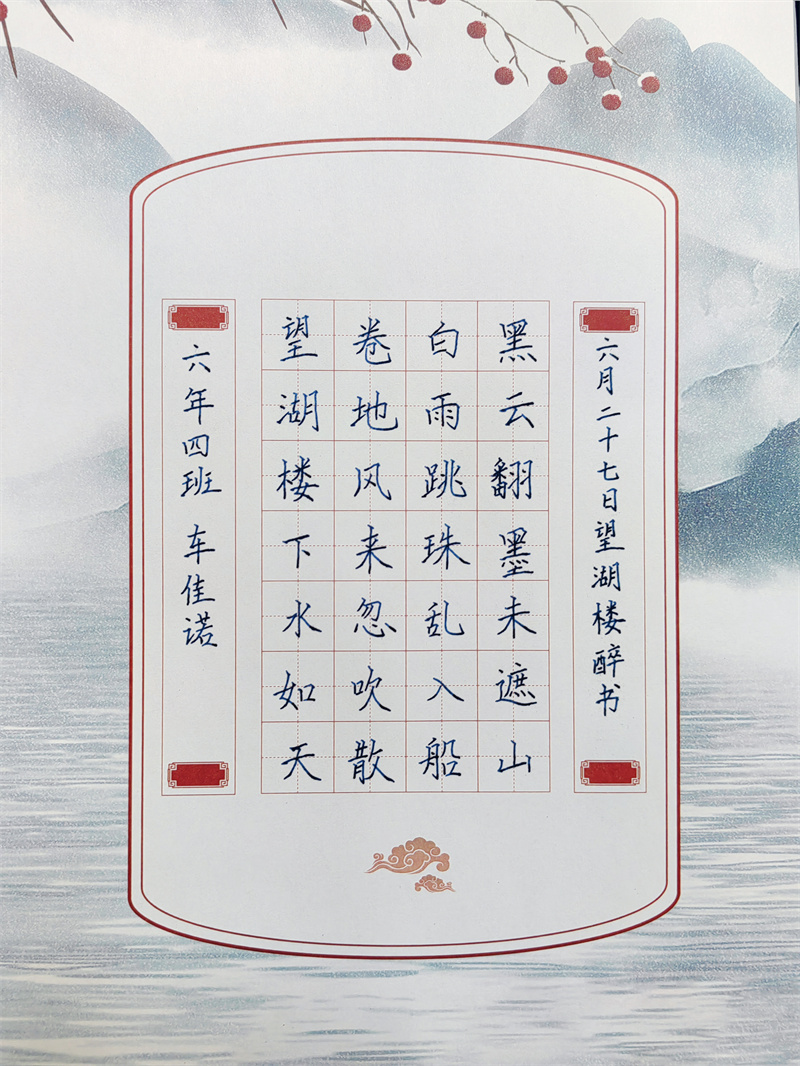 六月二十七日望湖楼醉书
黑云翻墨未遮山
白雨跳珠乱入船
卷地风来忽吹散
望湖楼下水如天
六年四班 车佳诺